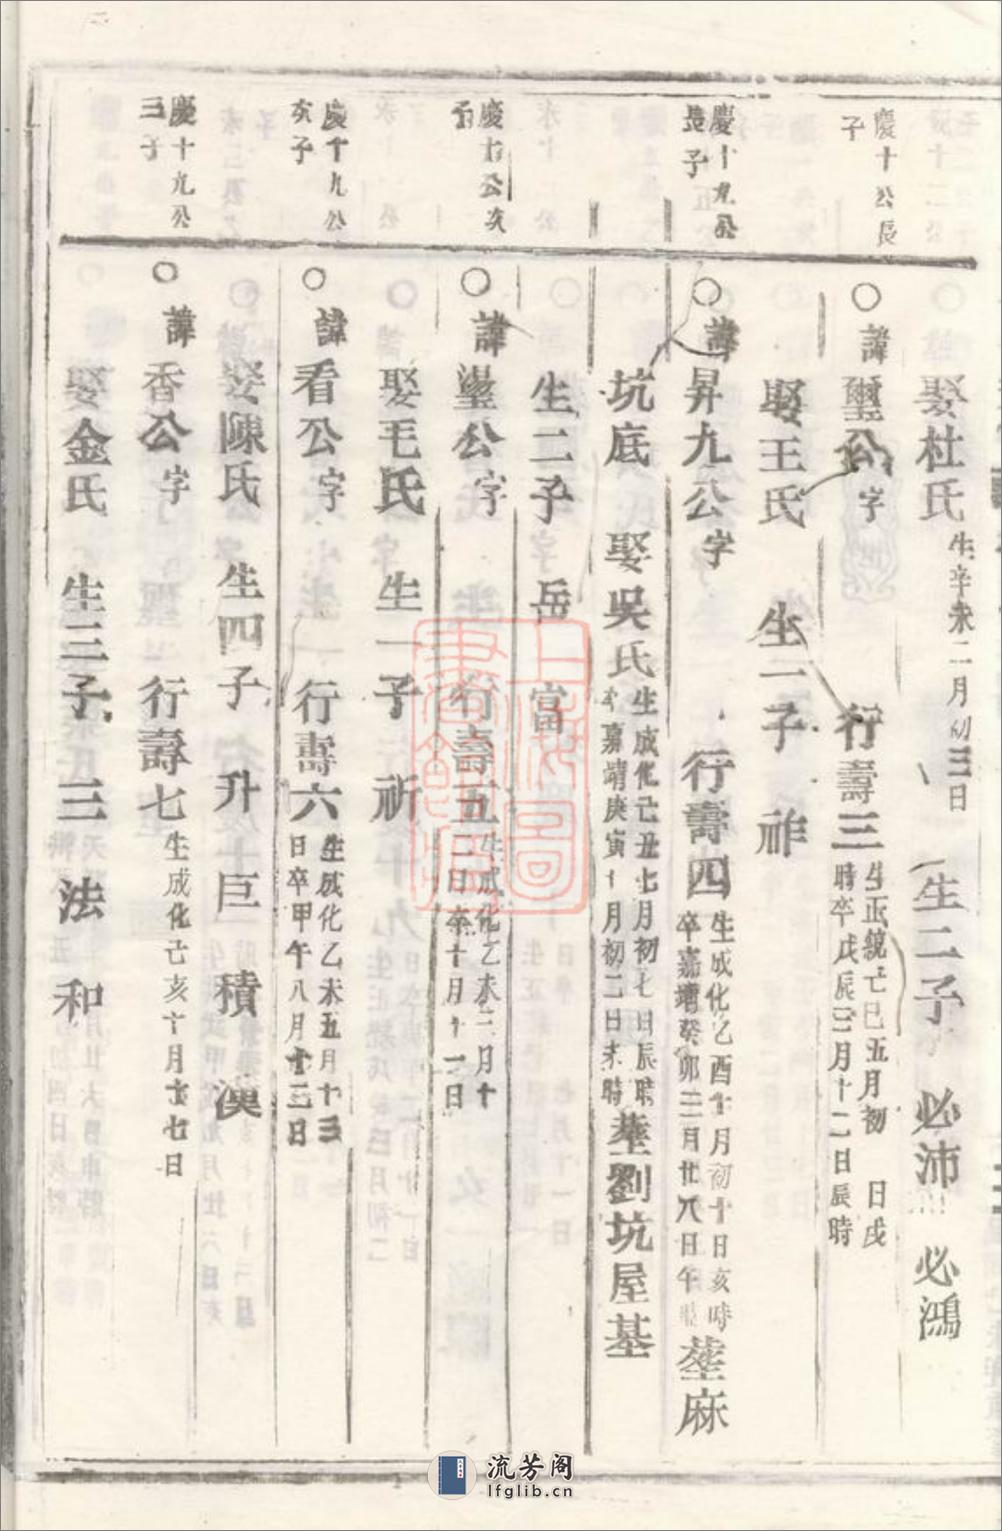 娶杜氏 生辛未二月初三日 生二子 必沛 必鴻
慶十公長子
○諱璽公字 行壽三 生正統己巳五月初 日戌時卒戊辰三月十二日辰時
娶王氏 生二子 祚
慶十九公長子
○諱昇九公字 行壽四 生成化乙酉十月初十日亥時卒嘉靖癸卯二月廿八日午時 塟麻
坑底 娶吳氏 生成化己丑七月初七日辰時卒嘉靖庚寅十月初二日未時 塟劉坑屋基
生二子 岳 富
慶十公次子
○諱璗公字 行壽五 生成化乙未三月十二日卒十月十一日
娶毛氏 生一子 祈
慶十九公次子
○諱看公字 行壽六 生成化乙未五月十三日卒甲午八月十三日
娶陳氏 生四子 升 巨 積 漢
慶十九公三子
○諱香公字 行壽七 生成化己亥六月十七日
娶金氏 生三子 三 法 和
上海圖書館藏
流芳阁
lfglib.cn